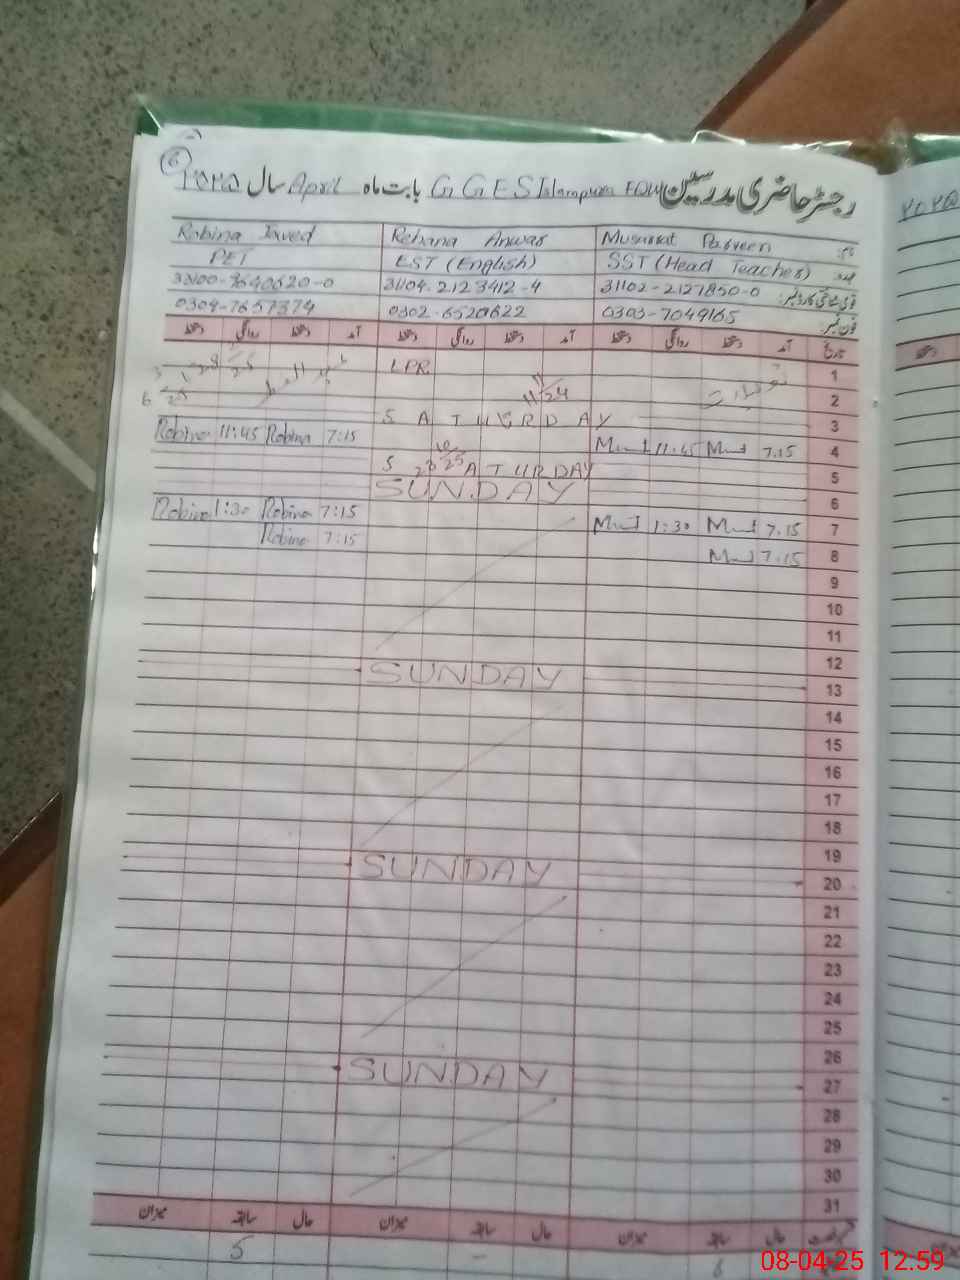 6
رجسٹر حاضری مدرسین GGES Islampura FDW بابت ماہ April سال ۲۰۲۵
Robina Javed Rehana Anwar Musarrat Parveen نام:
PET EST (English) SST (Head Teacher) عہدہ:
33100-9640620-0 31104-2123412-4 31102-2127850-0 قومی شناختی کارڈ نمبر:
0304-7657374 0302-6520622 0303-7049165 فون نمبر:
دستخط روانگی دستخط آمد دستخط روانگی دستخط آمد دستخط روانگی دستخط آمد تاریخ
عید الفطر LPR 1
11/24 2
SATURDAY 3
Robina 11:45 Robina 7:15 11:45 7.15 4
SATURDAY 5
SUNDAY
6
Robina 1:30 Robina 7:15 1:30 7.15 7
Robina 7:15 7.15 8
9
10
11
12
SUNDAY 13
14
15
16
17
18
19
SUNDAY 20
21
22
23
24
25
26
SUNDAY 27
28
29
30
31
میزان سابقہ حال میزان سابقہ حال میزان سابقہ حال
5 - 6
08-04-25 12.59